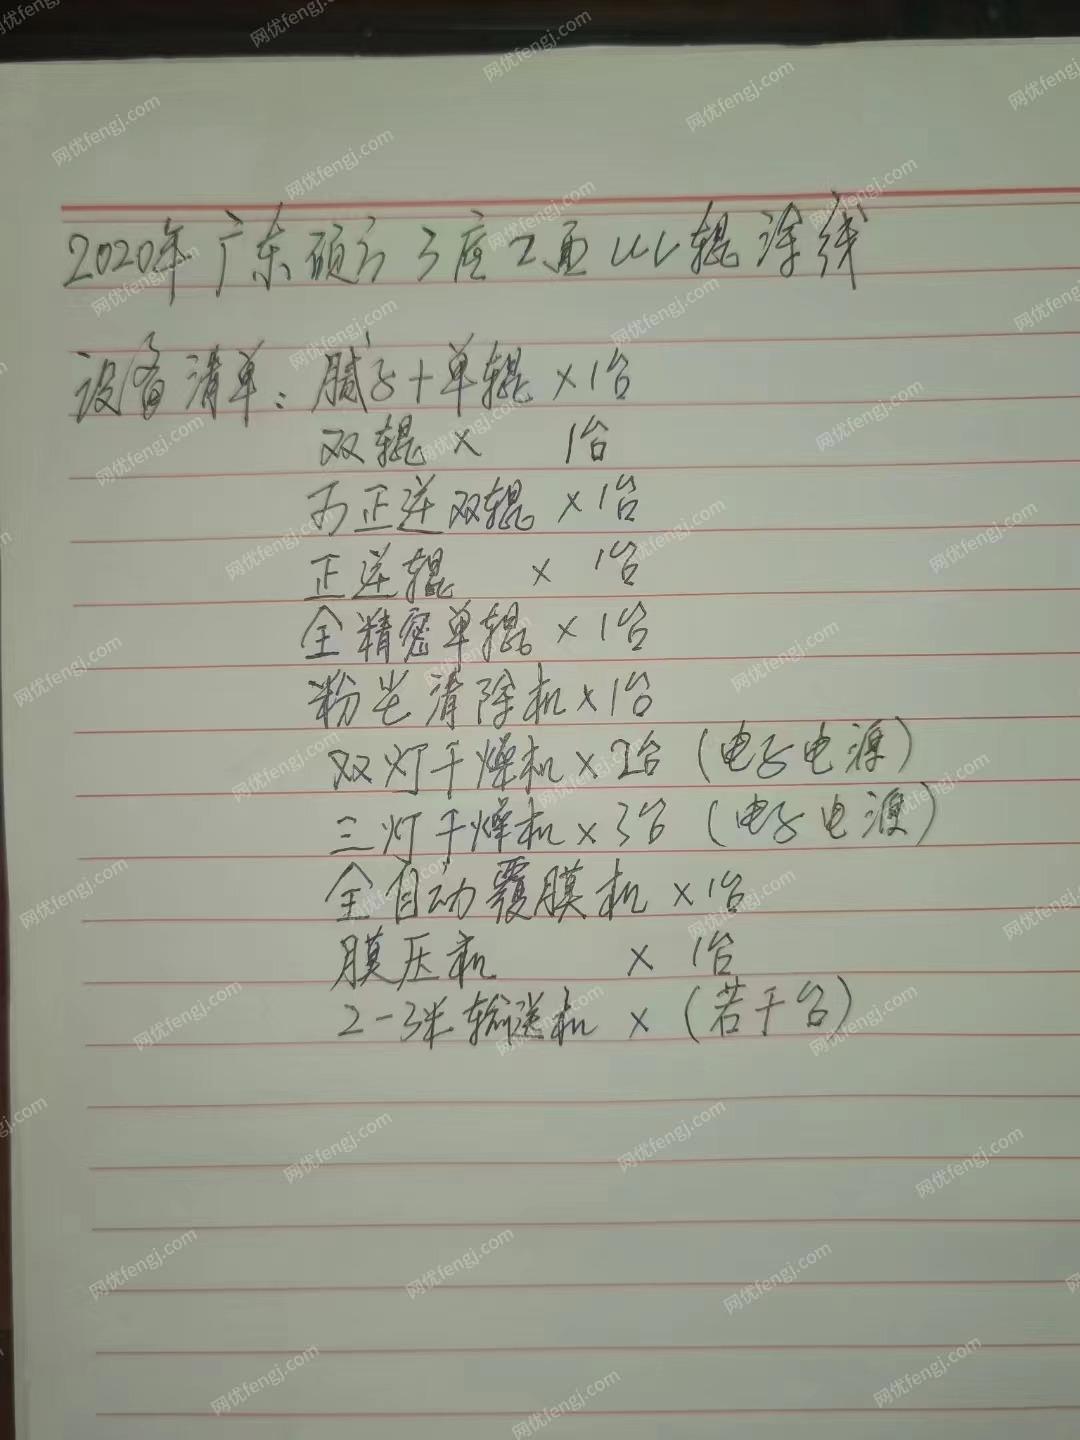 2020年广东硕方3底2面UV辊涂线
设备清单：腻子+单辊×1台
双辊× 1台
正逆双辊×1台
正逆辊 × 1台
全精密单辊×1台
粉尘清除机×1台
双灯干燥机×2台（电子电源）
三灯干燥机×3台（电子电源）
全自动覆膜机×1台
膜压机 × 1台
2-3米输送机 ×（若干台）
网优fengj.com